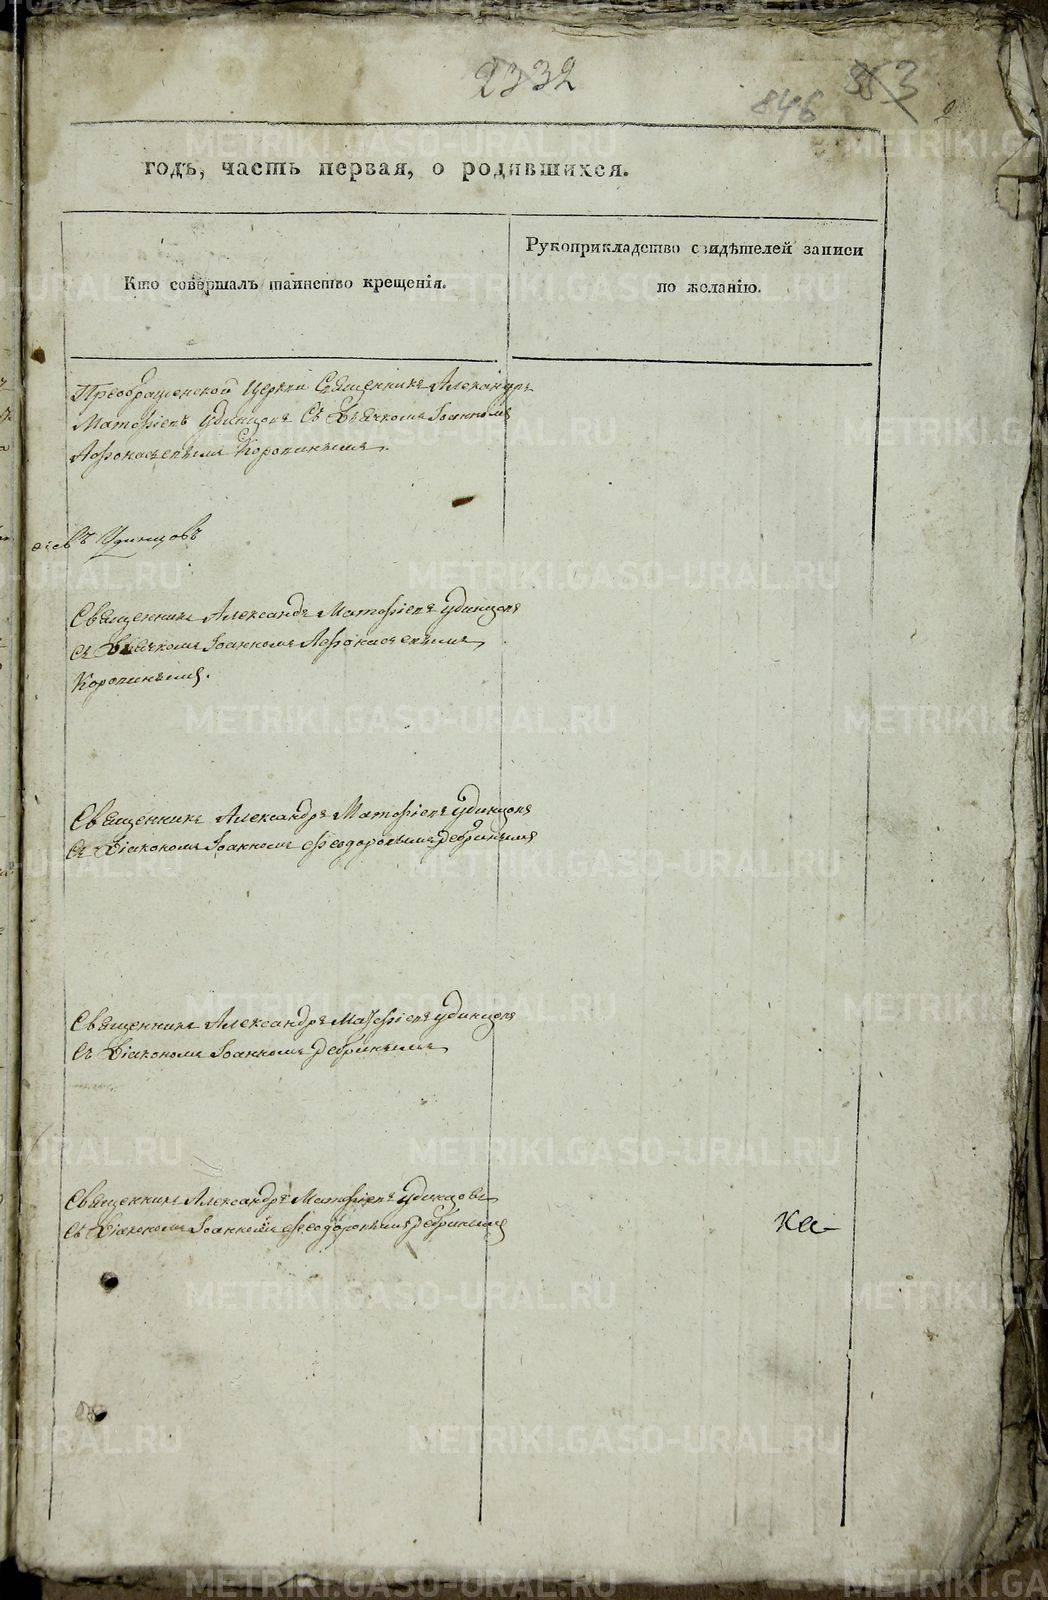 2332
846 353
2
годъ, часть первая, о родившихся.
Кто совершалъ таинство крещенія.
Рукоприкладство свидѣтелей записи
по желанію.
Преображенской Церкви Священникъ Александръ
Матѳіевъ Удинцовъ Съ Дьячкомъ Іоанномъ
Афонасьевымъ Коровинымъ.
ѳіевъ Удинцовъ
Священникъ Александъ Матѳіевъ Удинцовъ
съ Дьячкомъ Іоанномъ Афонасьевымъ
Коровинымъ.
Священникъ Александръ Матѳіевъ Удинцовъ
Съ Діакономъ Іоанномъ Феодоровымъ Дебринымъ
Священникъ Александръ Матѳіевъ Удинцовъ
Съ Діакономъ Іоанномъ Дебринымъ
Священникъ Александръ Матѳіевъ Удинцовъ
Съ Діакономъ Іоанномъ Феодоровымъ Дебринымъ
METRIKI.GASO-URAL.RU